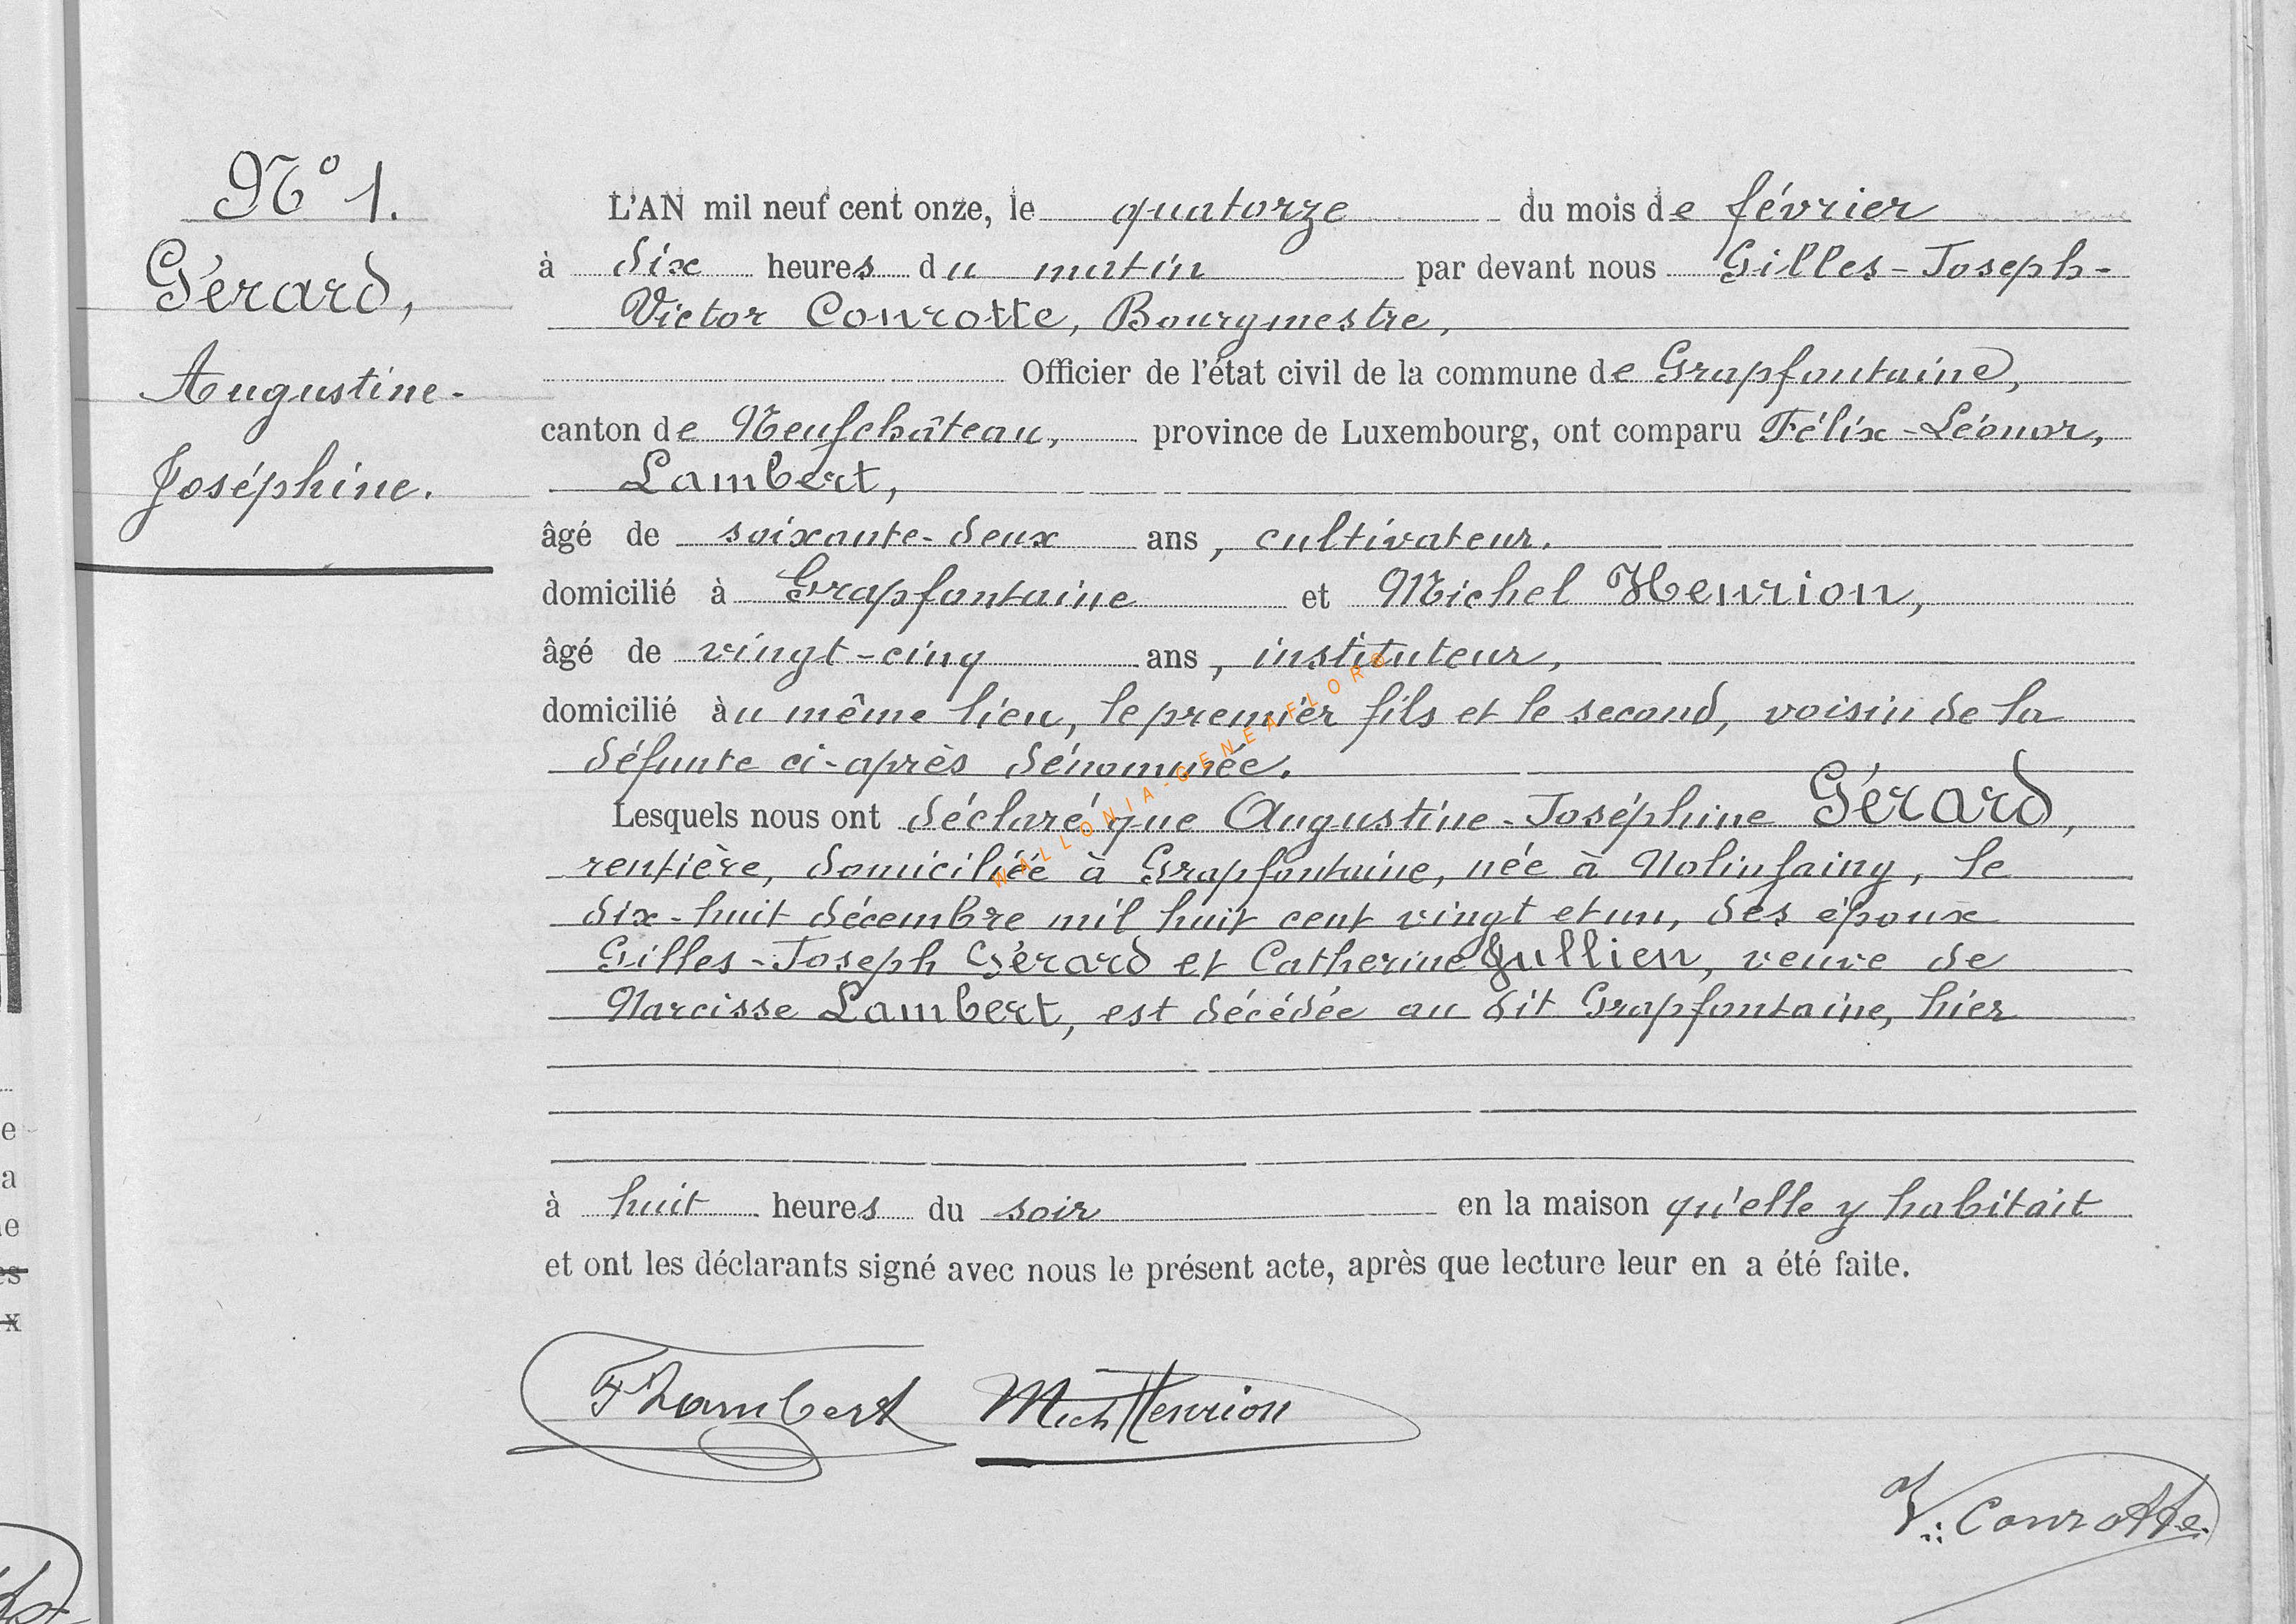 N° 1.
Gérard,
Augustine-
Joséphine.
L'AN mil neuf cent onze, le quatorze du mois de février
à dix heures du matin par devant nous Gilles-Joseph-
Victor Conrotte, Bourgmestre,
Officier de l'état civil de la commune de Grapfontaine,
canton de Neufchâteau, province de Luxembourg, ont comparu Félix-Léonor,
Lambert,
âgé de soixante-deux ans, cultivateur,
domicilié à Grapfontaine et Michel Henrion,
âgé de vingt-cinq ans, instituteur,
domicilié au même lieu, le premier fils et le second, voisin de la
défunte ci-après dénommée.
Lesquels nous ont déclaré que Augustine-Joséphine Gérard,
rentière, domiciliée à Grapfontaine, née à Nolinfaing, le
dix-huit décembre mil huit cent vingt et un, des époux
Gilles-Joseph Gérard et Catherine Jullien, veuve de
Narcisse Lambert, est décédée au dit Grapfontaine, hier
à huit heures du soir en la maison qu'elle y habitait
et ont les déclarants signé avec nous le présent acte, après que lecture leur en a été faite.
F Lambert Mich Henrion
V. Conrotte
WALLONIA-GENEAFLOR©